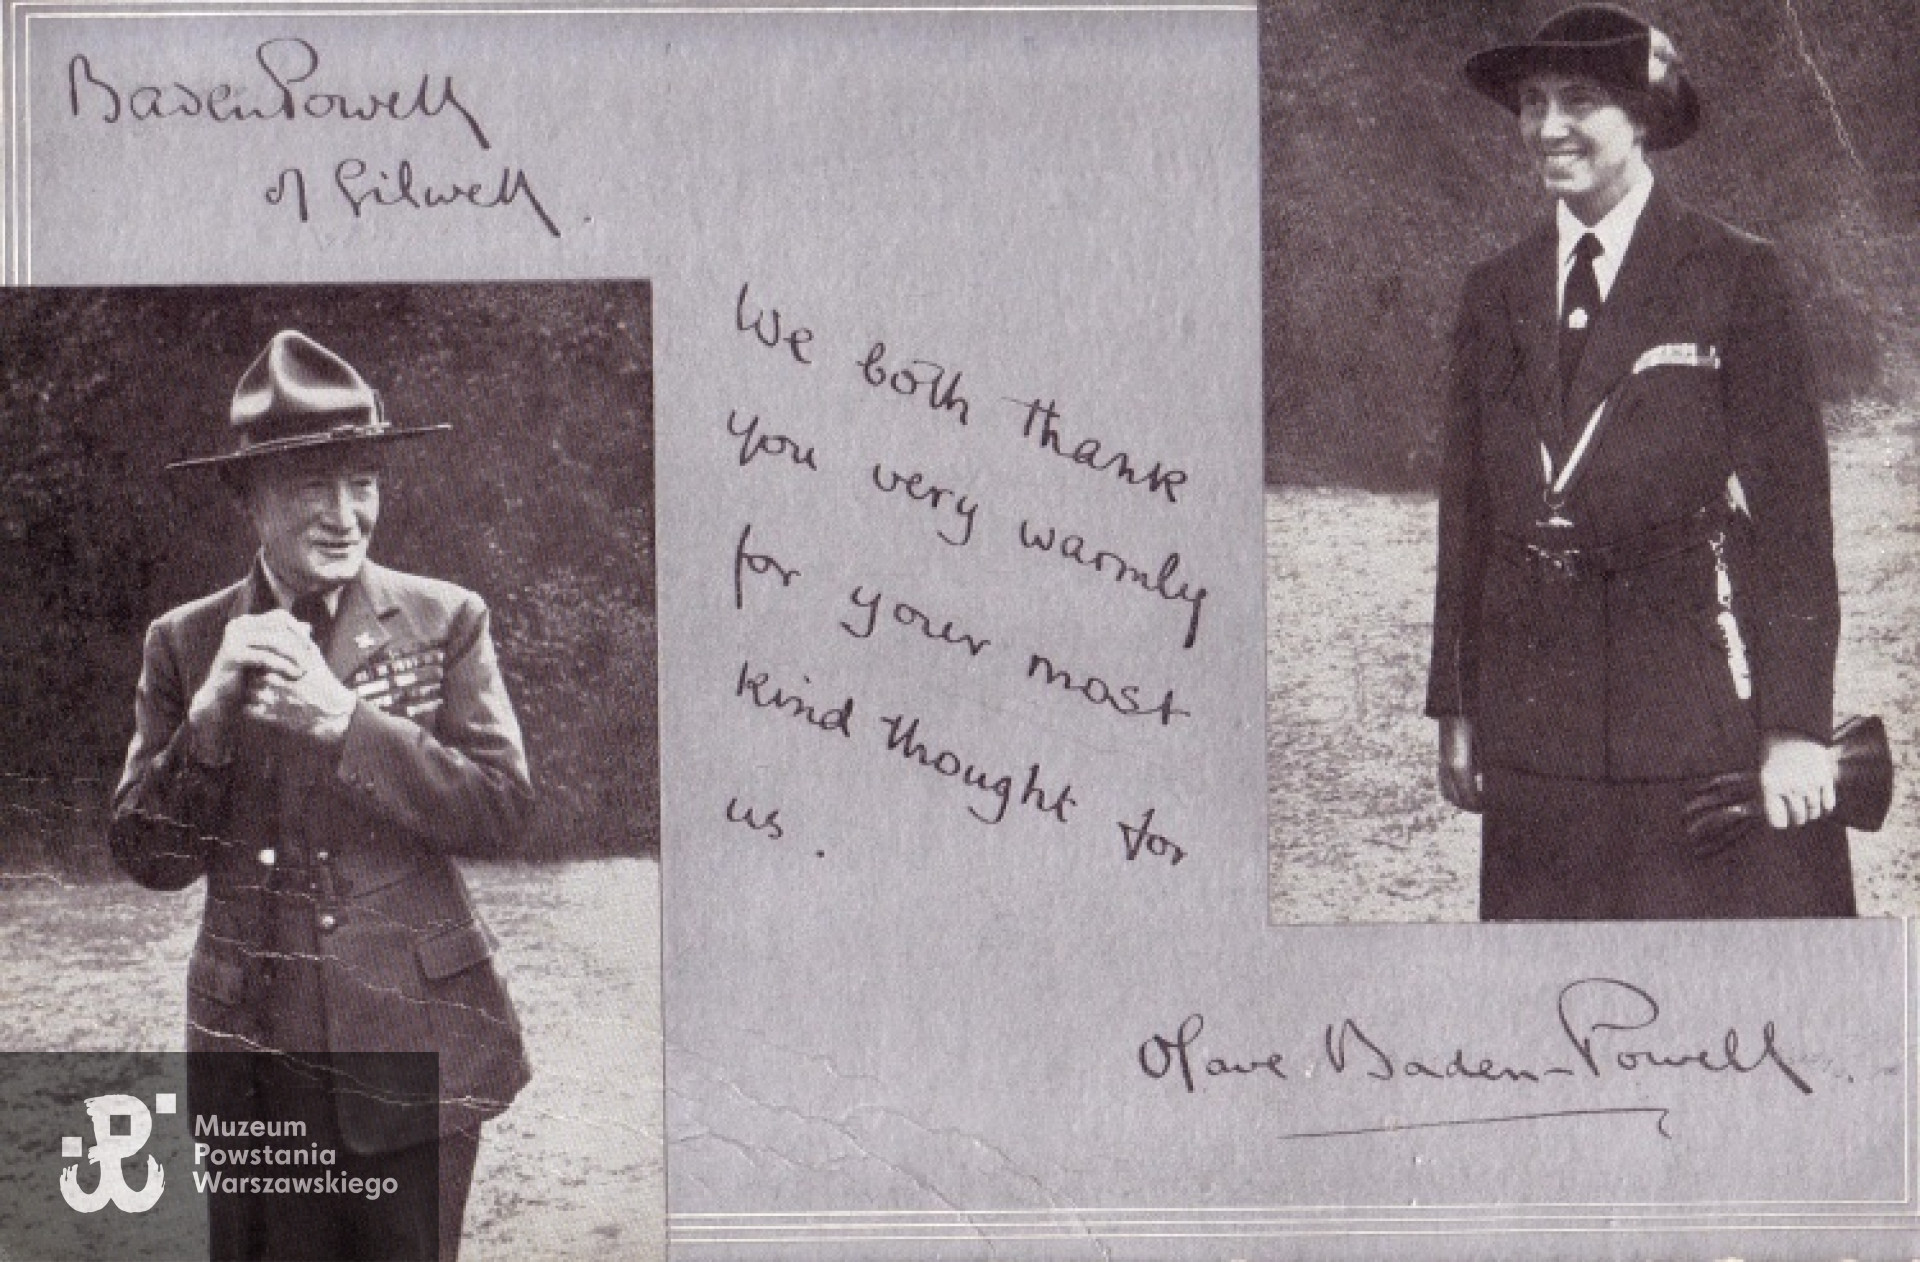 Baden Powell
of Gilwell.
We both thank
you very warmly
for your most
kind thought for
us.
Olave Baden-Powell.
Muzeum
Powstania
Warszawskiego